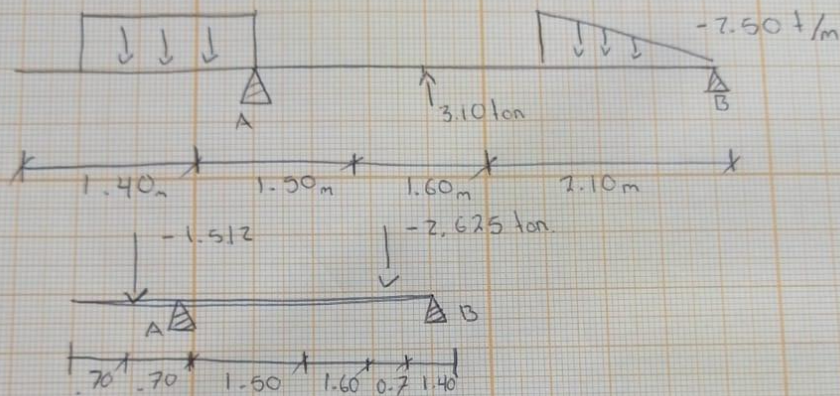 -2.50 t/m
A
3.10 ton
B
1.40m
1.50m
1.60m
2.10m
-1.512
-2.625 ton.
A
B
.70
.70
1.50
1.60
0.7
1.40